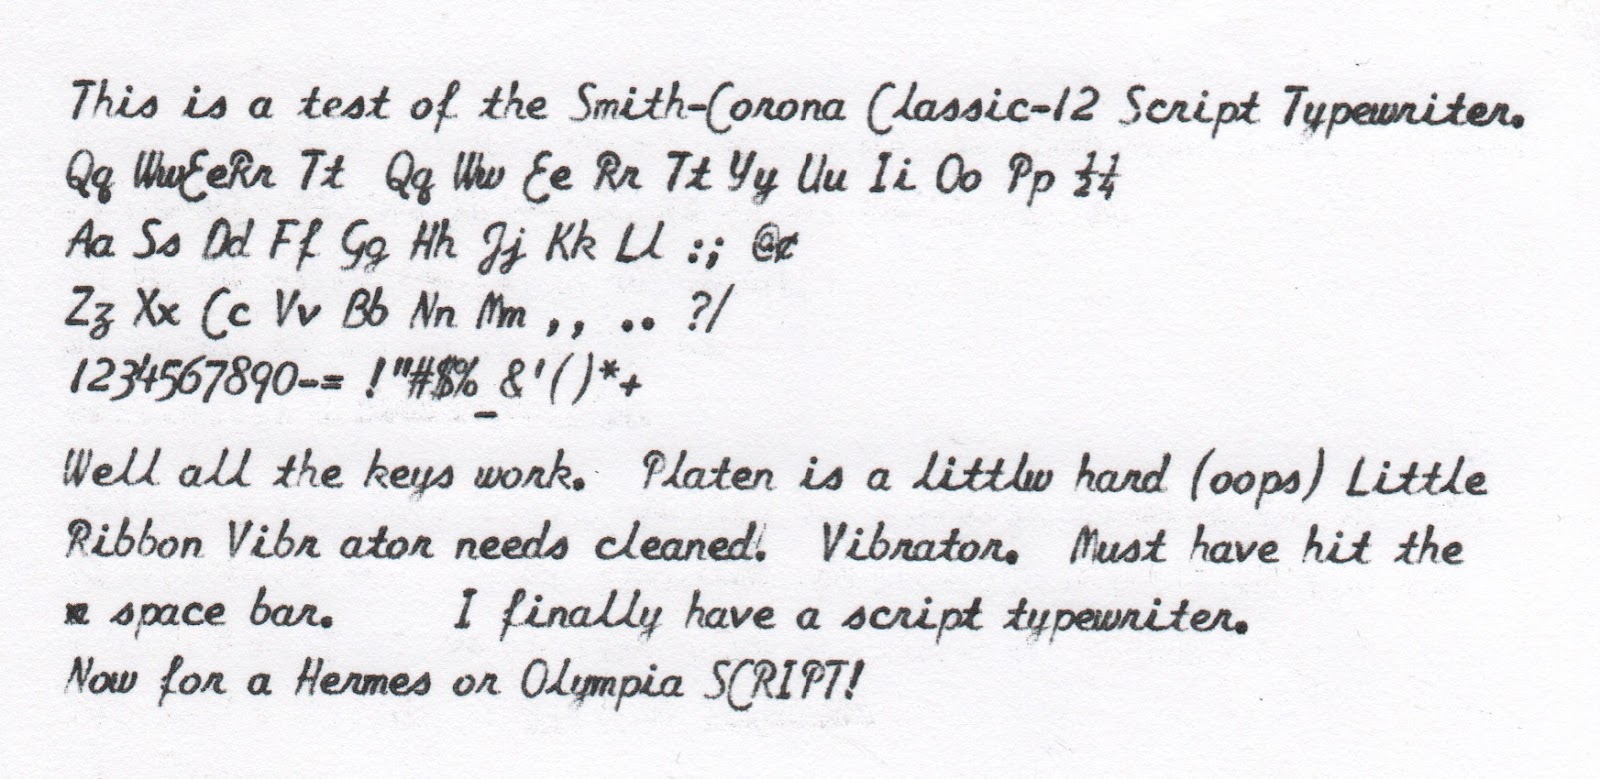 This is a test of the Smith-Corona Classic-12 Script Typewriter.
Qq WwEeRr Tt Qq Ww Ee Rr Tt Yy Uu Ii Oo Pp ½¼
Aa Ss Dd Ff Gg Hh Jj Kk Ll :; @¢
Zz Xx Cc Vv Bb Nn Mm ,, .. ?/
1234567890-= !"#$%_&'()*+
Well all the keys work. Platen is a littlw hard (oops) Little
Ribbon Vibr ator needs cleaned. Vibrator. Must have hit the
space bar. I finally have a script typewriter.
Now for a Hermes or Olympia SCRIPT!